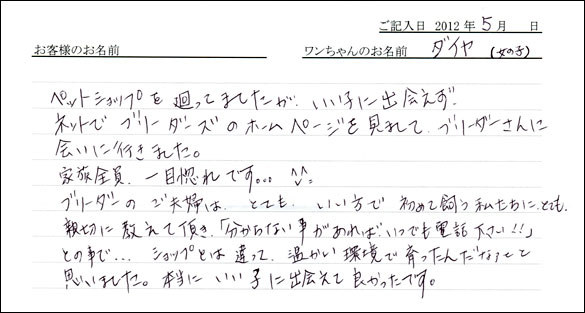 ご記入日 2012年5月 日
お客様のお名前 ワンちゃんのお名前 ダイヤ (女の子)
ペットショップを廻ってましたが、いい子に出会えず、
ネットでブリーダーズのホームページを見れて、ブリーダーさんに
会いに行きました。
家族全員、一目惚れです。。。^^
ブリーダーのご夫婦は、とても、いい方で初めて飼う私たちに、とても
親切に教えて頂き、「分からない事があれば、いつでも電話下さい!!」
との事で… ショップとは違って、温かい環境で育ったんだなぁと
思いました。本当にいい子に出会えて良かったです。